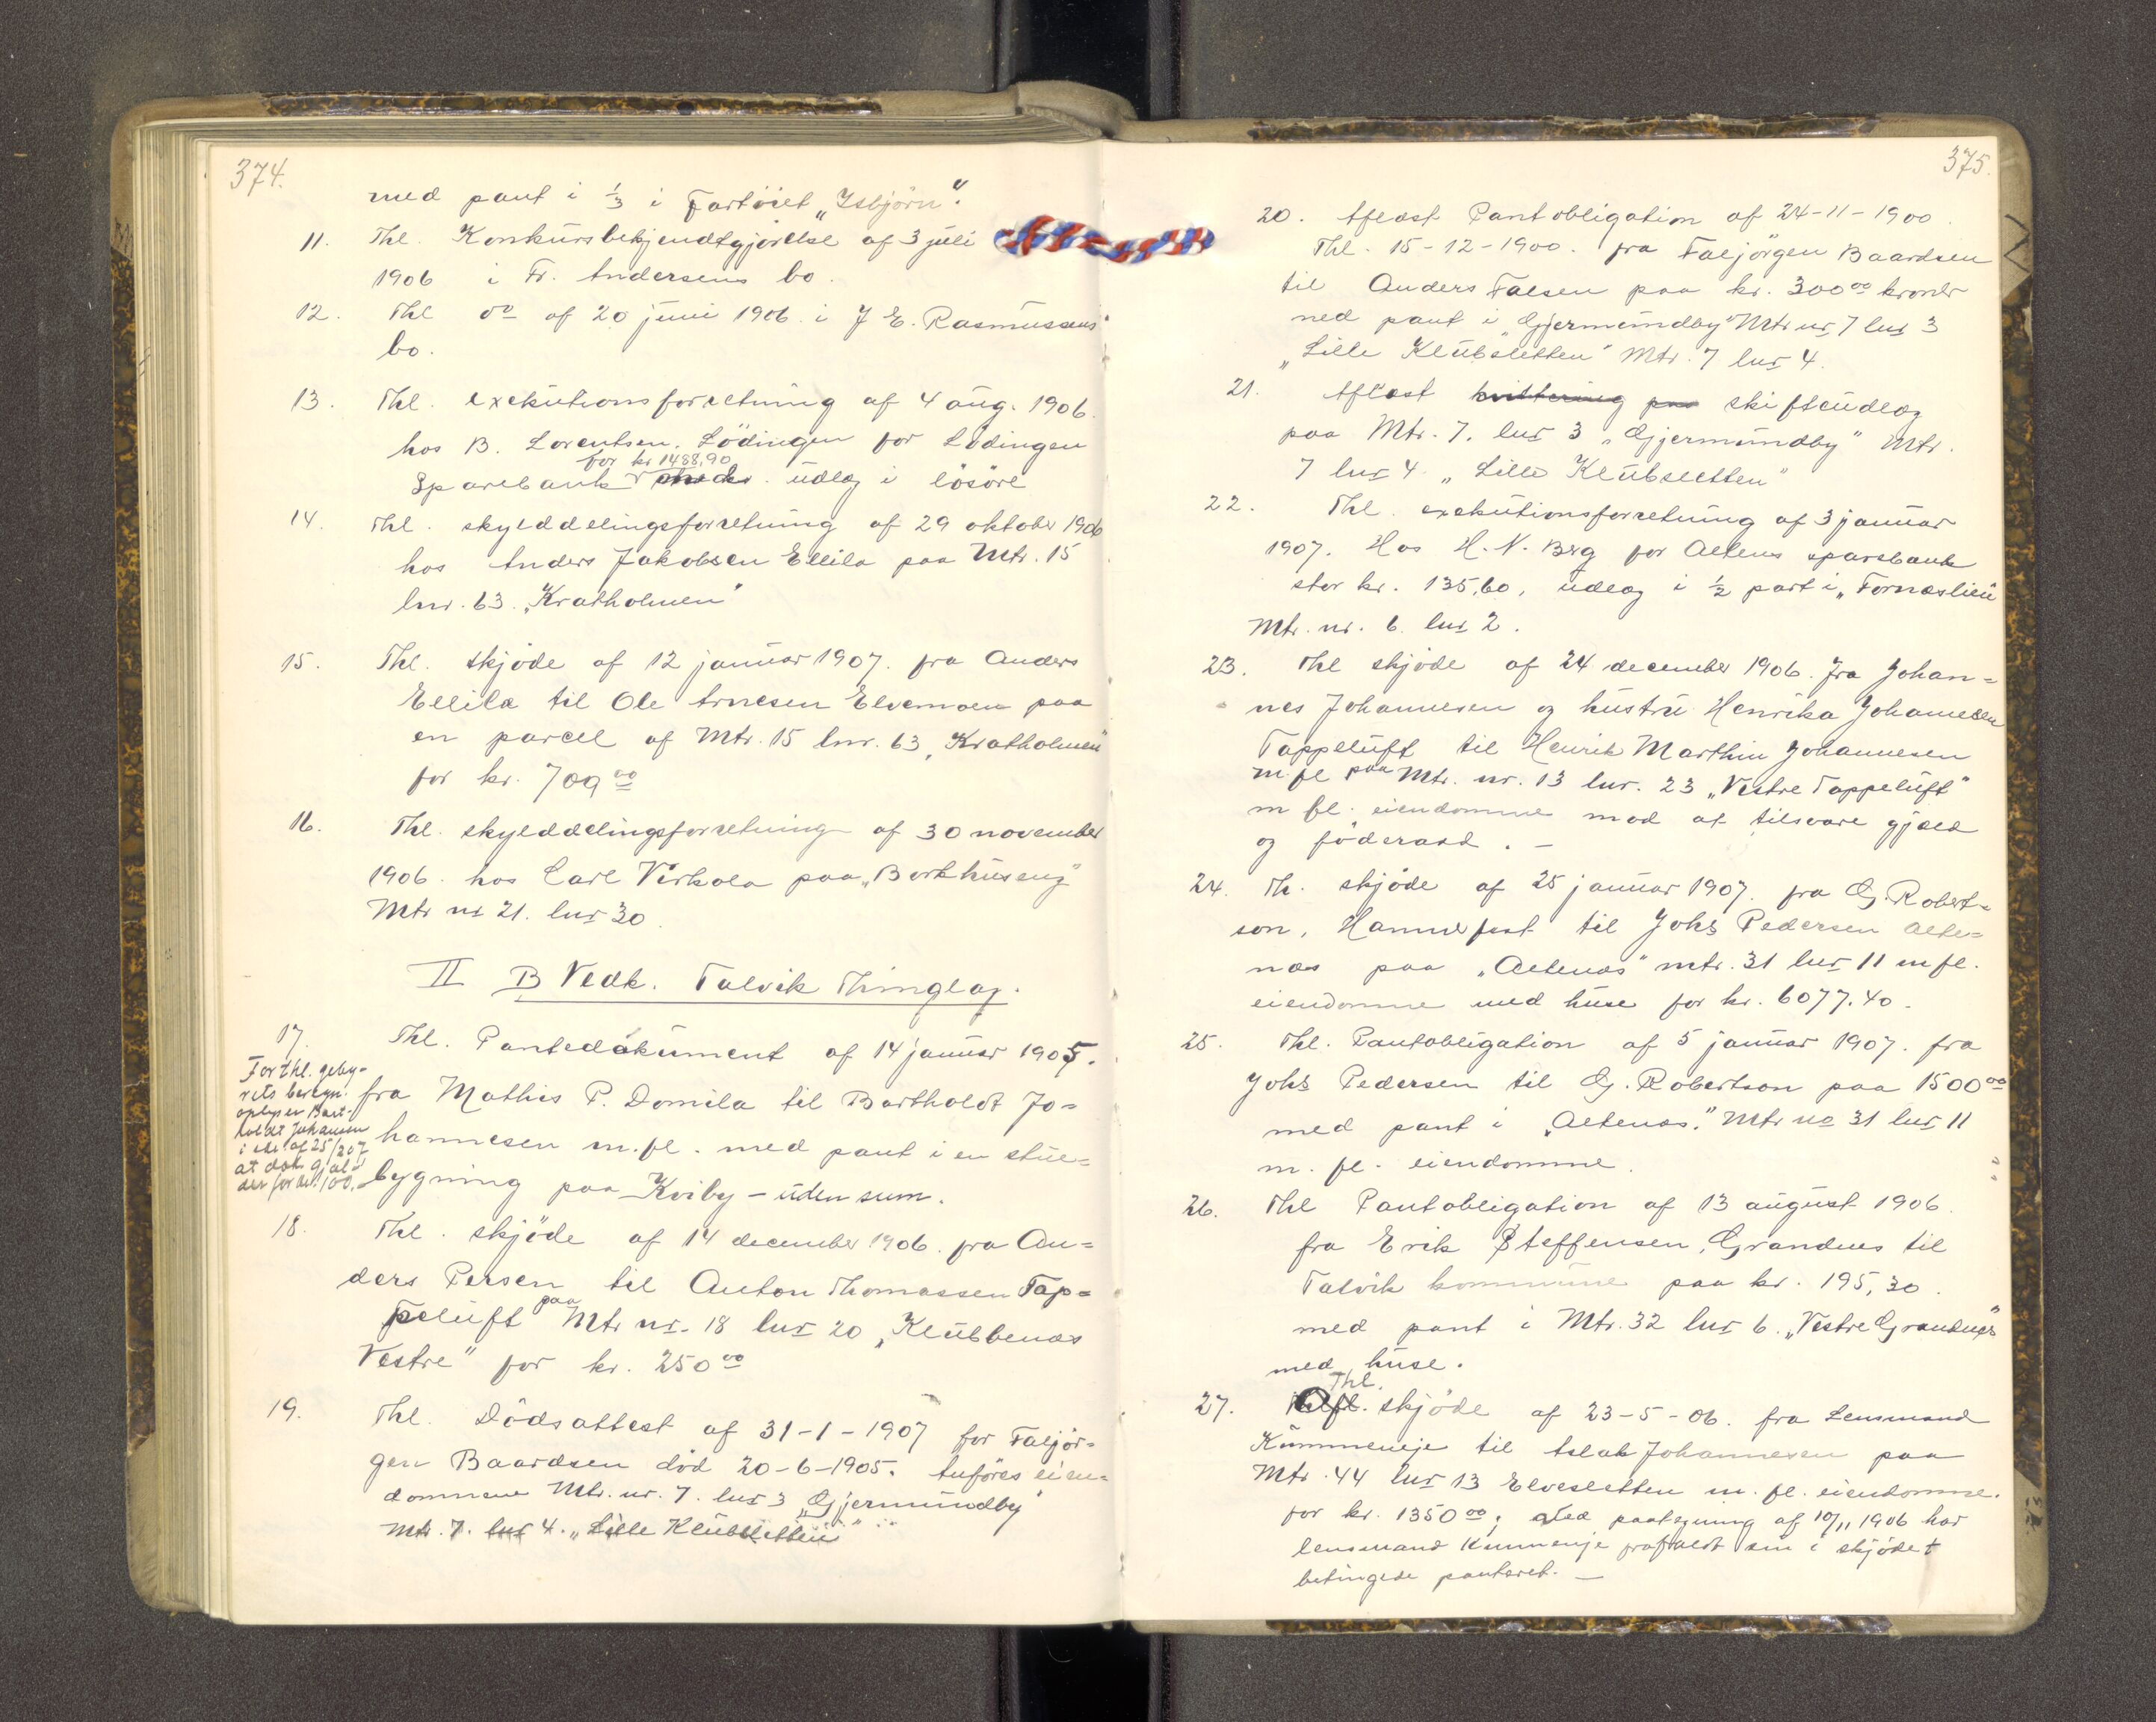 374.
med pant i 1/3 i Fartöiet „Isbjörn".
11. Thl. Konkursbekjendtgjörelse af 3 juli
1906 i Fr. Andersens bo.
12. Thl do af 20 juni 1906 i J E. Rasmussens
bo.
13. Thl. exekutionsforretning af 4 aug. 1906.
hos B. Lorentsen, Lödingen for Lödingen
for kr 1488,90
Sparebank udlæg i lösöre
14. Thl. skylddelingsforretning af 29 oktober 1906
hos Anders Jakobsen Ellila paa Mtr. 15
lnr. 63 „Kratholmen"
15. Thl. skjöde af 12 januar 1907. fra Anders
Ellila til Ole Arnesen Elvemoen paa
en parcel af Mtr. 15 lnr. 63 „Kratholmen"
for kr. 709 00
16. Thl. skylddelingsforretning af 30 november
1906 hos Carl Virkola paa „Borkhuseng"
Mtr nr 21. lnr 30.
II B Vedk. Talvik Thinglag.
17. Thl. Pantedokument af 14 januar 1905.
For thl. geby-
rets beregn.
oplyser Bart-
holdt Johansen
i skr. af 25/2 07
at dok. gjæl-
der for kr. 100.
fra Mathis P. Domila til Bartholdt Jo-
hannesen m.fl. med pant i en stue-
bygning paa Kviby - uden sum.
18. Thl. skjöde af 14 december 1906. fra An-
ders Persen til Anton Thomassen Tap-
peluft paa Mtr nr. 18 lnr 20 „Klubbenæs
Vestre" for kr. 250 00
19. Thl. Dödsattest af 31-1-1907 for Faljör-
gen Baardsen död 20-6-1905. Anföres eien-
dommene Mtr. nr. 7. lnr 3 „Gjermundby"
Mtr. 7. lnr 4. „Lille Klubsletten"
375.
20. Aflæst Pantobligation af 24-11-1900.
Thl. 15-12-1900. fra Faljörgen Baardsen
til Anders Falsen paa kr. 300 00 kroner
med pant i „Gjermundby" Mtr nr 7 lnr 3
„Lille Klubsletten" Mtr. 7 lnr 4.
21. Aflæst kvittering paa skifteudlæg
paa Mtr. 7. lnr 3 „Gjermundby" Mtr.
7 lnr 4 „Lille Klubsletten"
22. Thl. exekutionsforretning af 3 januar
1907. Hos H. N. Brg for Altens sparebank
stor kr. 135,60, udlæg i 1/2 part i „Fornæslien"
Mtr. nr. 6. lnr 2.
23. Thl skjöde af 24 december 1906. fra Johan=
nes Johannesen og hustru Henrika Johannesen
Tappeluft til Henrik Marthin Johannesen
m.fl paa Mtr. nr. 13 lnr. 23 „Vestre Tappeluft"
m fl. eiendomme mod at tilsvare gjæld
og föderaad. -
24. Th. skjöde af 25 januar 1907. fra G. Robert=
son, Hammerfest til Johs Pedersen Alte=
næs paa „Altenæs" mtr. 31 lnr 11 m fl.
eiendomme med huse for kr. 6077.40.
25. Thl. Pantobligation af 5 januar 1907. fra
Johs Pedersen til G. Robertson paa 1500 00
med pant i „Altenæs". Mtr no 31 lnr 11
m. fl. eiendomme.
26. Thl Pantobligation af 13 august 1906.
fra Erik Steffensen, Grandnes til
Talvik kommune paa kr. 195,30.
med pant i Mtr. 32 lnr 6. „Vestre Grandnes"
med huse.
27. Thl. skjöde af 23-5-06. fra Lensmand
Kummeneje til Aslak Johannesen paa
Mtr. 44 lnr 13 Elvesletten m. fl. eiendomme.
for kr. 1350 00; Ved paategning af 10/11 1906 har
lensmand Kummenje frafaldt sin i skjödet
betingede panteret. -